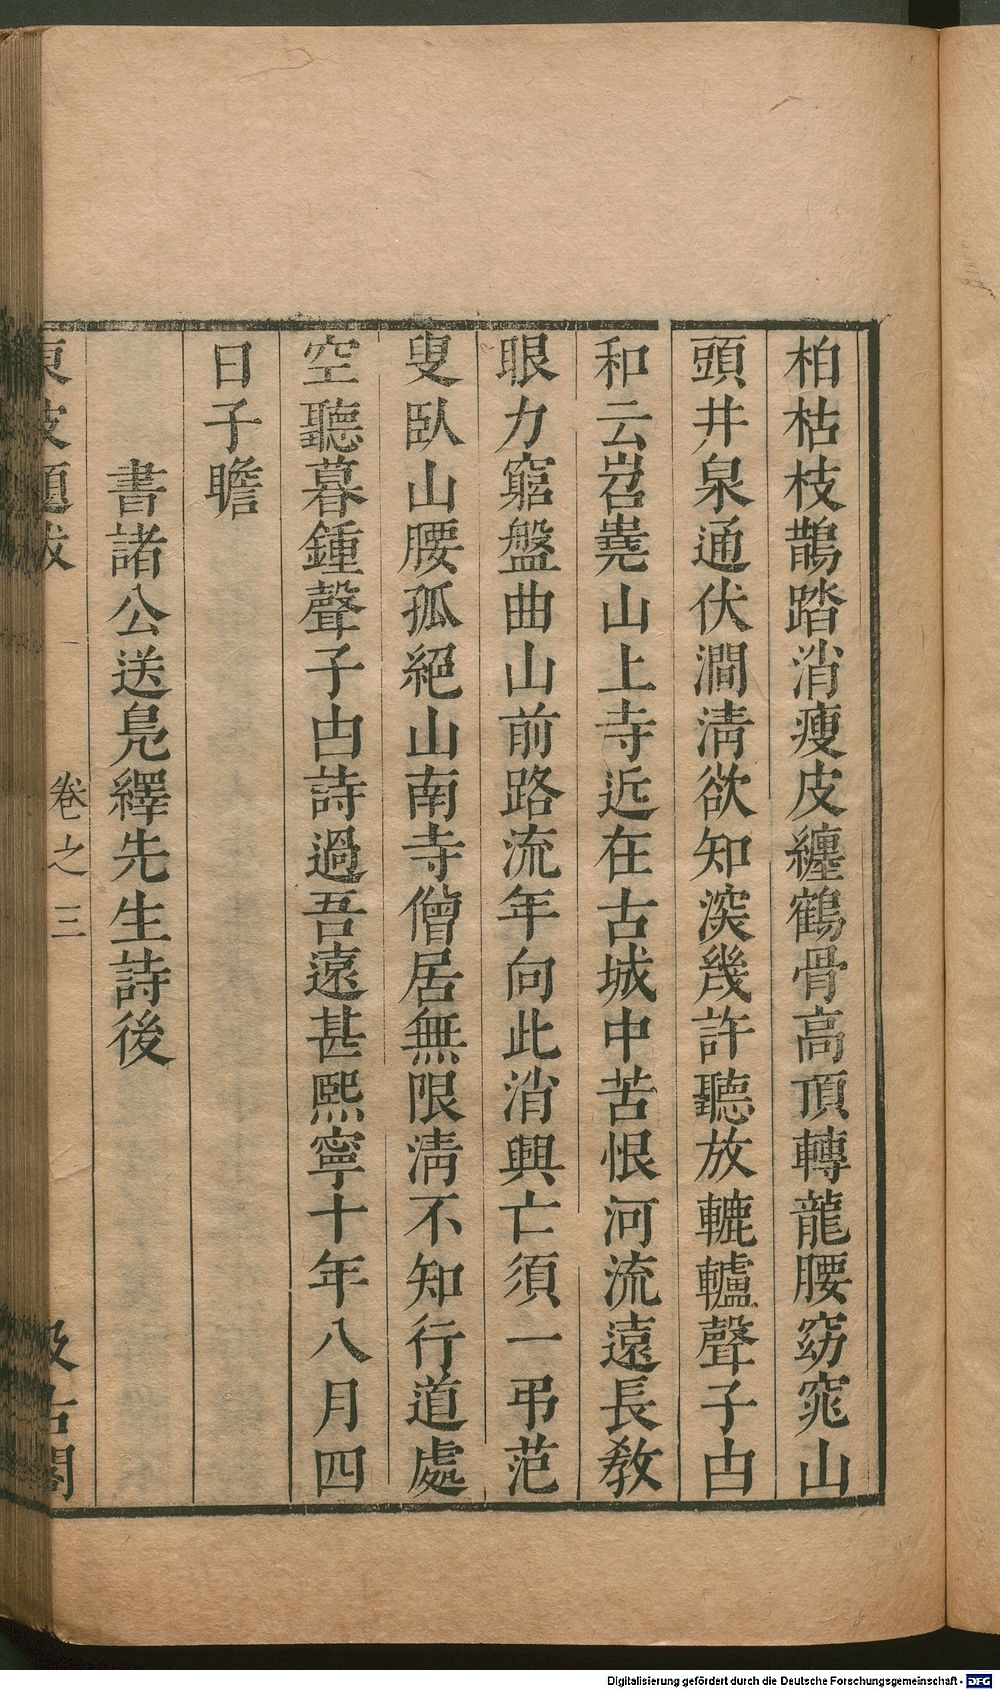 柏枯枝鵲踏消瘦皮纏鶴骨高頂轉龍腰窈窕山
頭井泉通伏澗淸欲知深幾許聽放轆轤聲子由
和云岧嶤山上寺近在古城中苦恨河流遠長敎
眼力窮盤曲山前路流年向此消興亡須一弔范
叟臥山腰孤絕山南寺僧居無限淸不知行道處
空聽暮鍾聲子由詩過吾遠甚熙寧十年八月四
日子瞻
書諸公送鳧繹先生詩後
東坡題跋 卷之三 汲古閣
Digitalisierung gefördert durch die Deutsche Forschungsgemeinschaft - DFG